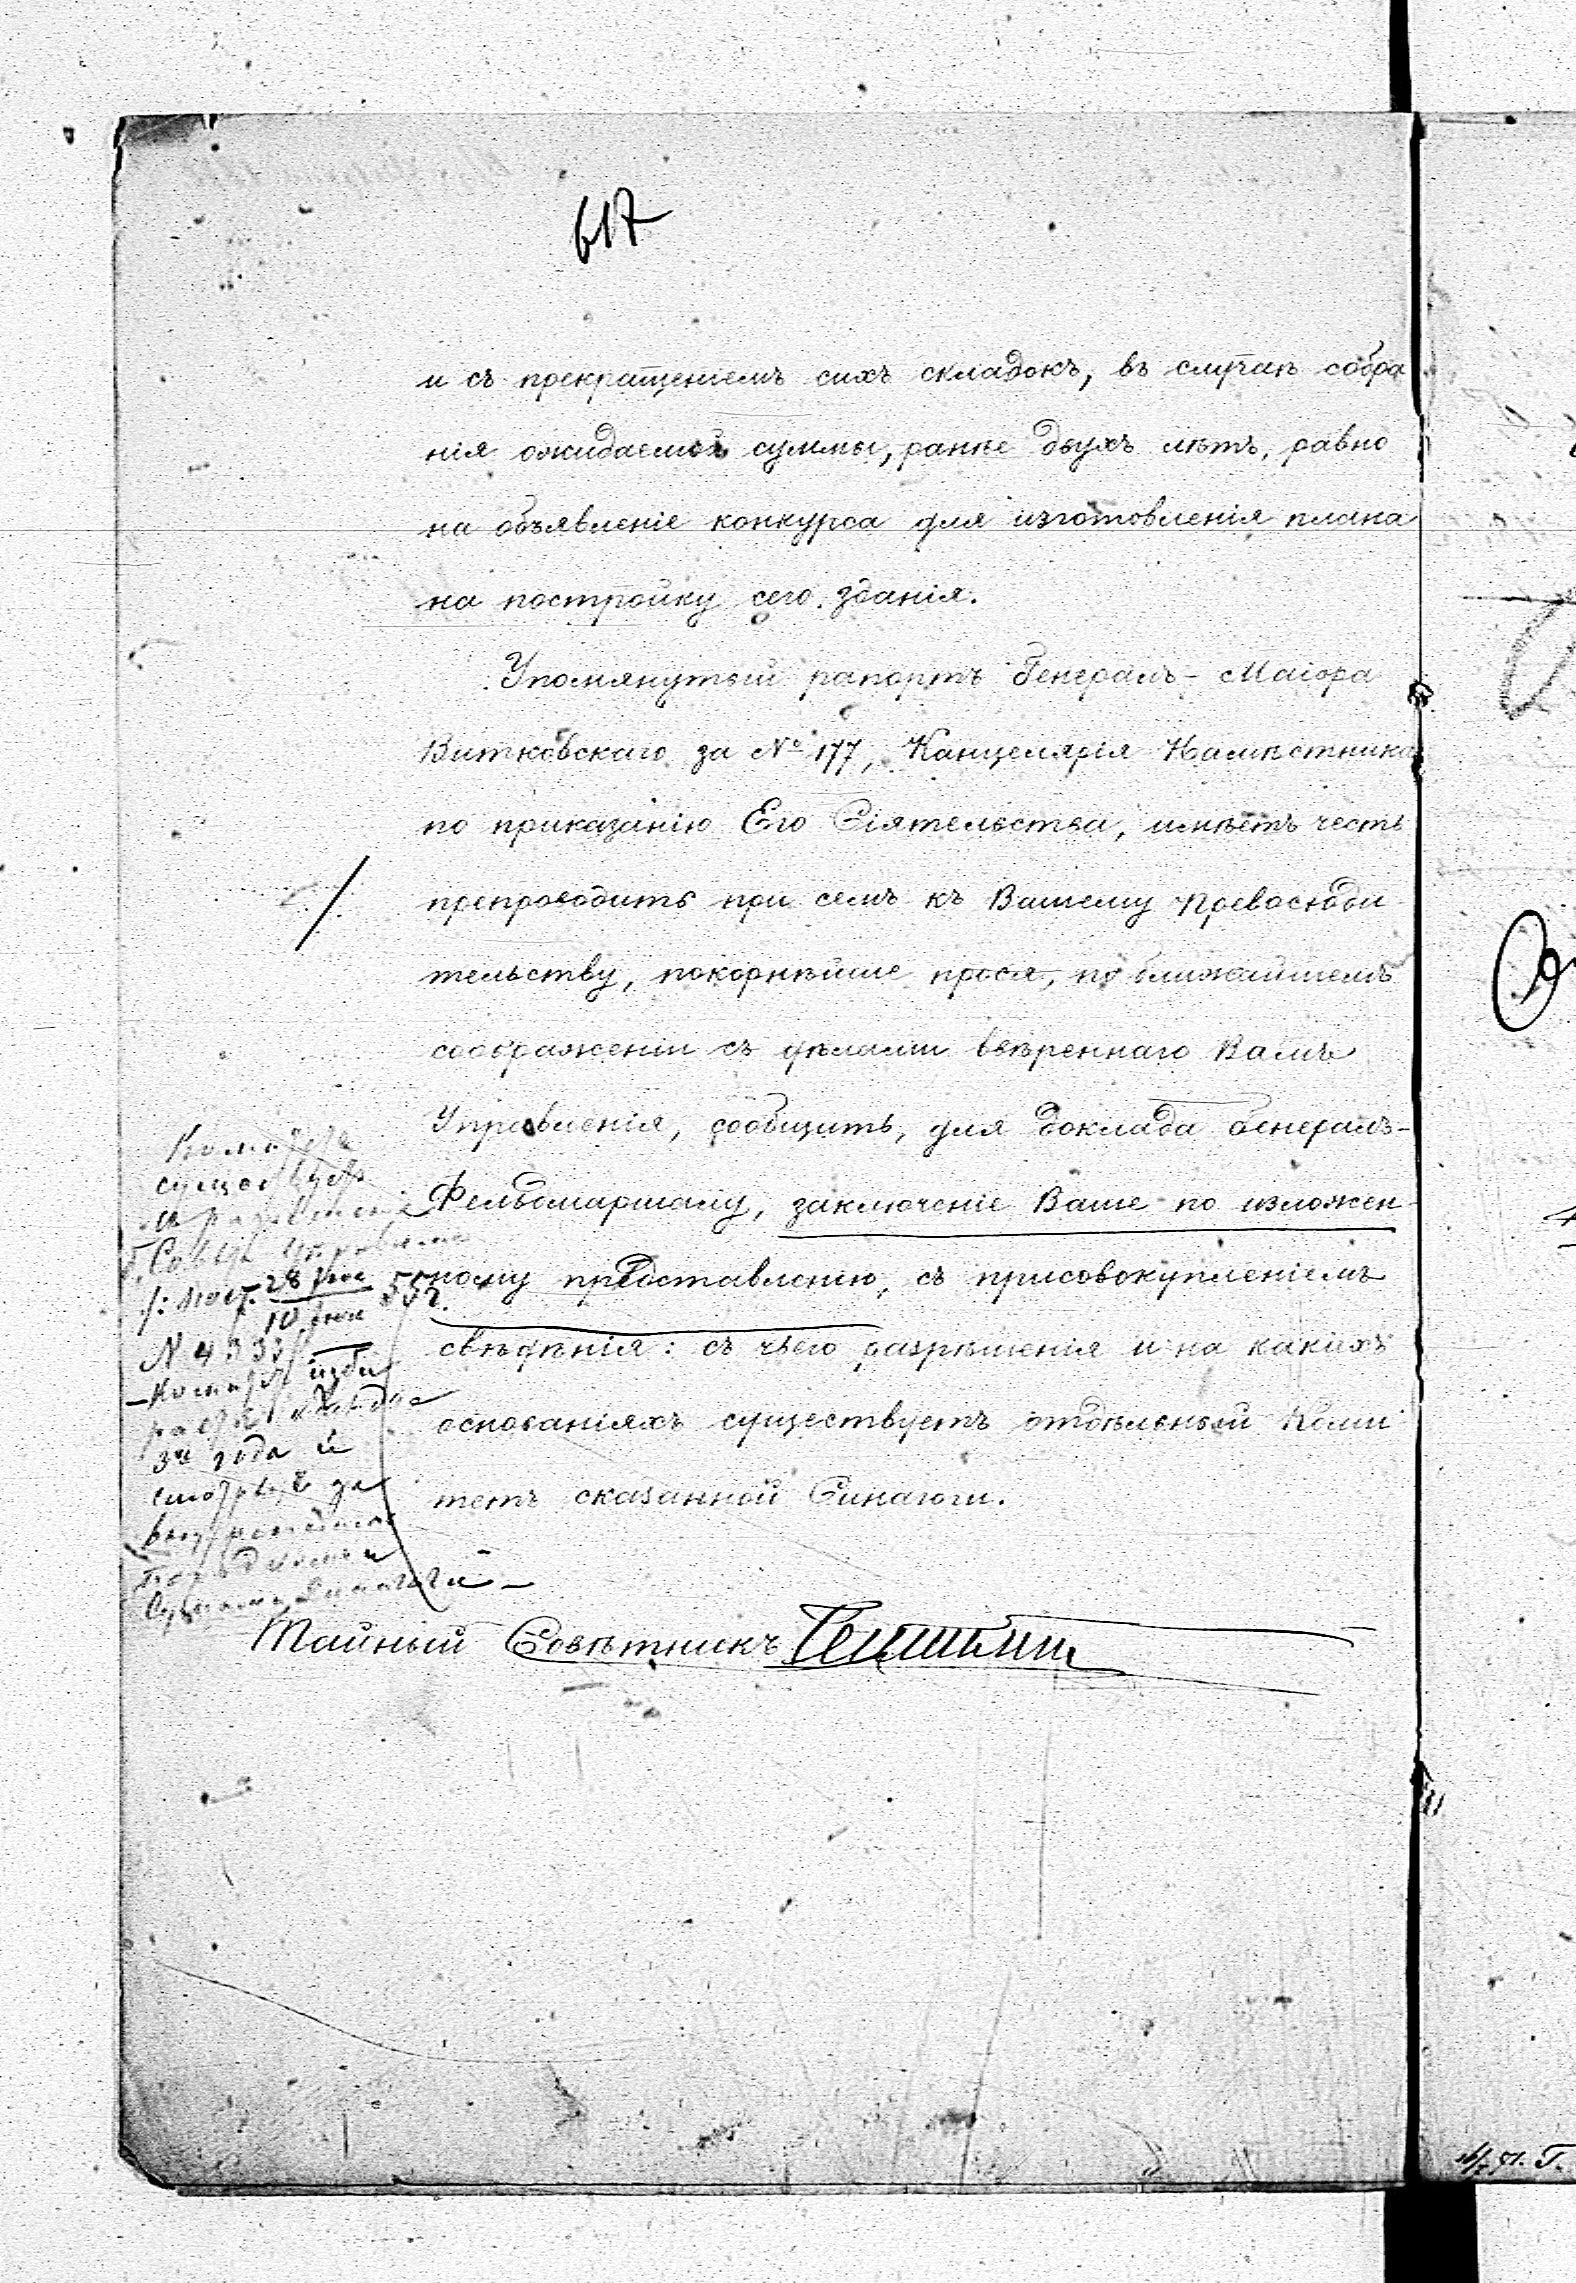 617
и съ прекращеніемъ сихъ складокъ, въ случаѣ собра
нія ожидаемой суммы, ранѣе двухъ лѣтъ, равно
на объявленіе конкурса для изготовленія плана
на постройку сего зданія.
Упомянутый рапортъ Генералъ-Маіора
Витковскаго за № 177, Канцелярія Намѣстника
по приказанію Его Сіятельства, имѣетъ честь
препроводить при семъ къ Вашему Превосходи
тельству, покорнѣйше прося, по ближайшемъ
соображеніи съ дѣлами ввѣреннаго Вамъ
Управленія, сообщить, для доклада Генералъ-
Фельдмаршалу, заключеніе Ваше по изложен-
ному представленію, съ присовокупленіемъ
свѣдѣнія: съ чьего разрѣшенія и на какихъ
основаніяхъ существуетъ отдѣльный Коми
тетъ сказанной Синагоги.
Комитетъ
существуетъ
28
10
55 г.
N 4333
3 года и
Тайный Совѣтникъ